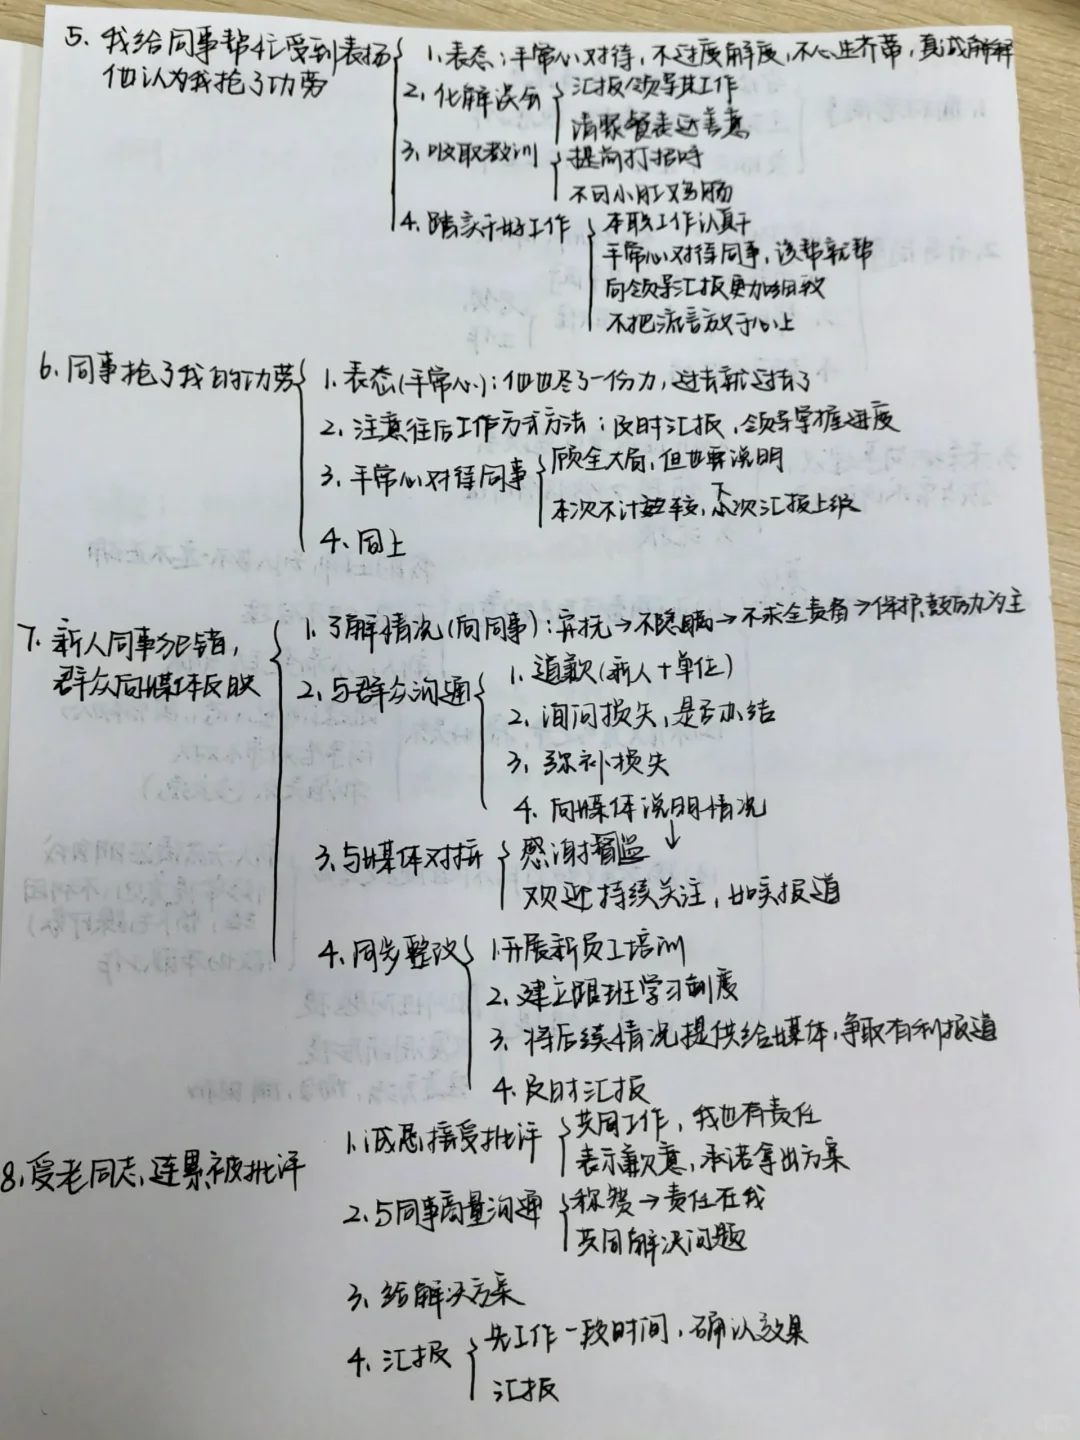 5、我给同事帮忙受到表扬
他认为我抢了功劳
1、表态：平常心对待，不过度解度，不心生芥蒂，真诚解释
2、化解误会
汇报领导其工作
请聚餐表达善意
3、吸取教训
提前打招呼
不可小肚鸡肠
4、踏实干好工作
本职工作认真干
平常心对待同事，该帮就帮
向领导汇报更加细致
不把流言放于心上
6、同事抢了我的功劳
1、表态（平常心）：他也尽了一份力，过去就过去了
2、注意往后工作方式方法：及时汇报，领导掌握进度
3、平常心对待同事
顾全大局，但也要说明
本次不计较，下次汇报上级
4、同上
7、新人同事犯错，
群众向媒体反映
1、了解情况（向同事）：安抚→不隐瞒→不求全责备→保护鼓励为主
2、与群众沟通
1、道歉（新人+单位）
2、询问损失，是否办结
3、弥补损失
4、向媒体说明情况
3、与媒体对接
感谢
欢迎持续关注，如实报道
4、同步整改
1、开展新员工培训
2、建立跟班学习制度
3、将后续情况提供给媒体，争取有利报道
4、及时汇报
8、受老同志连累被批评
1、诚恳接受批评
共同工作，我也有责任
表示歉意，承诺拿出方案
2、与同事商量沟通
称赞→责任在我
共同解决问题
3、给解决方案
4、汇报
先工作一段时间，确认效果
汇报